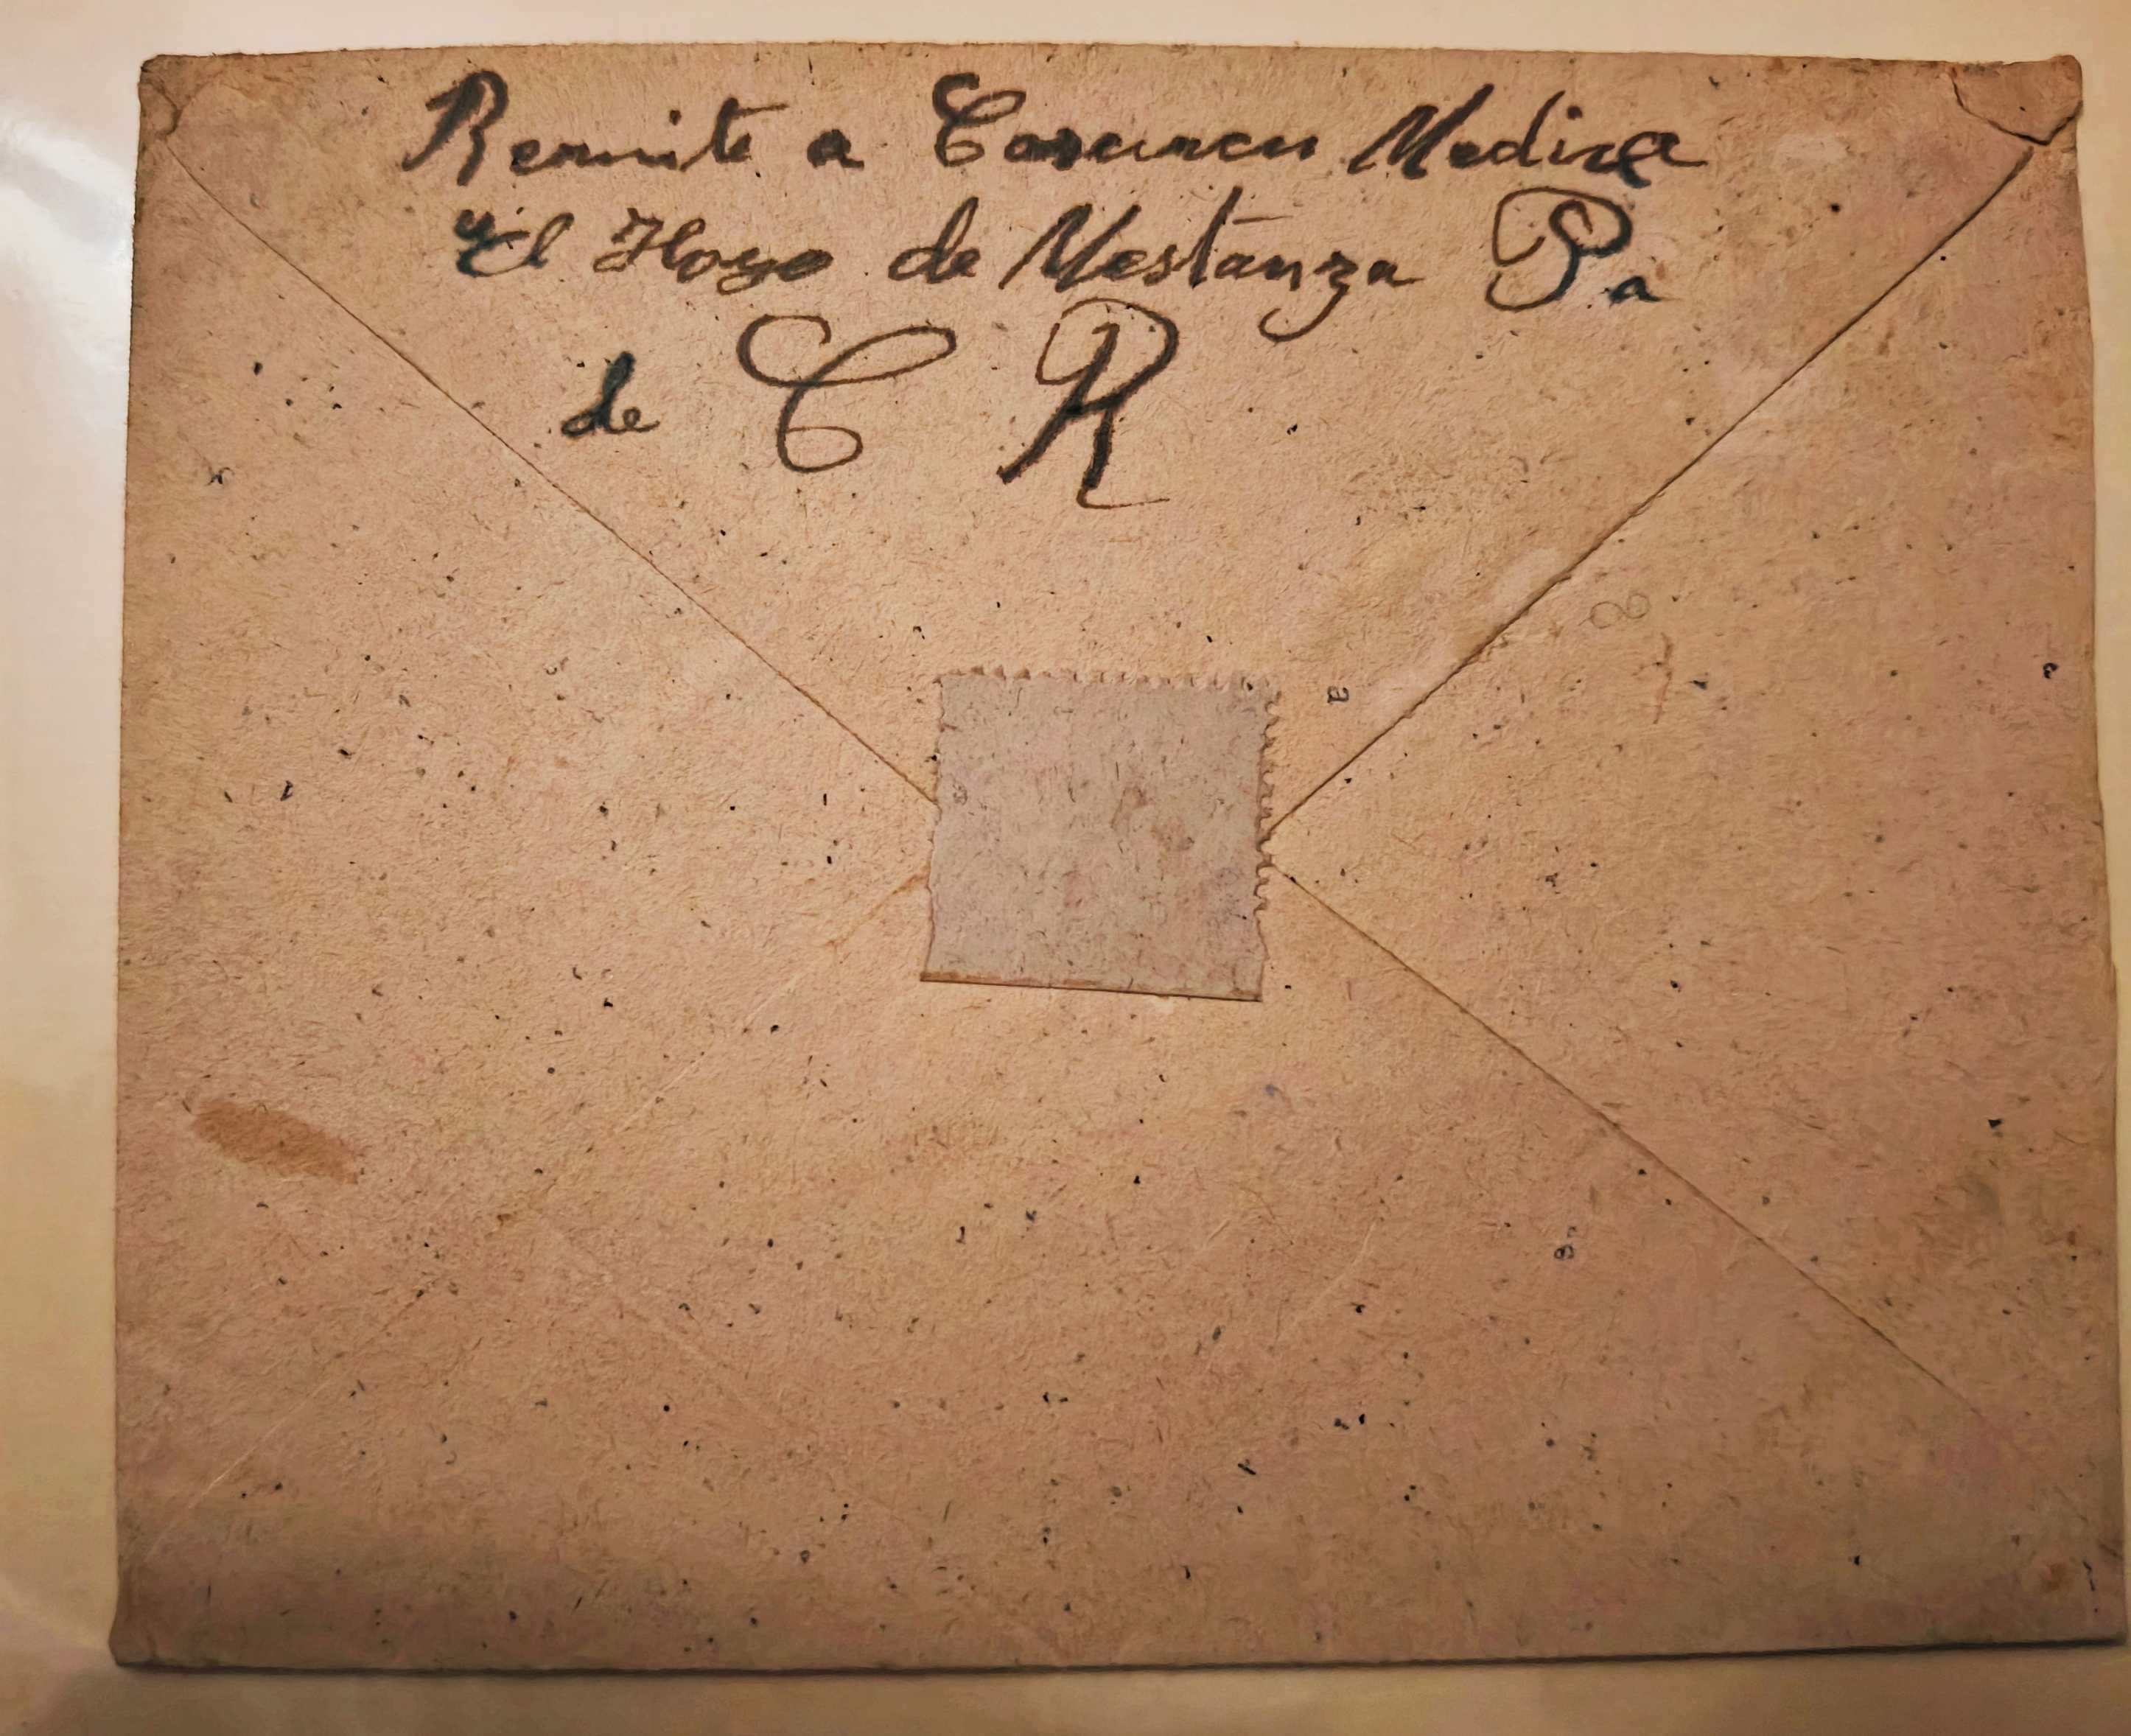 Remite a Medina
El Hoyo de Mestanza Pa
de C R